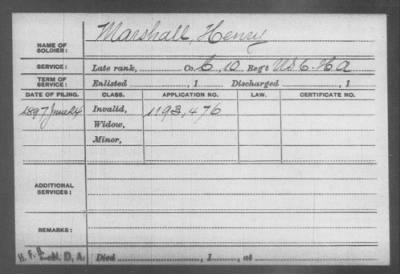 Marshall, Henry
NAME OF SOLDIER:
SERVICE: Late rank, Co. E, 10 Reg't U.S.C.H.A
TERM OF SERVICE: Enlisted , 1 Discharged , 1
DATE OF FILING. CLASS. APPLICATION NO. LAW. CERTIFICATE NO.
1897 June 24 Invalid, 1193,476
Widow,
Minor,
ADDITIONAL SERVICES:
REMARKS:
Died , 1 , at